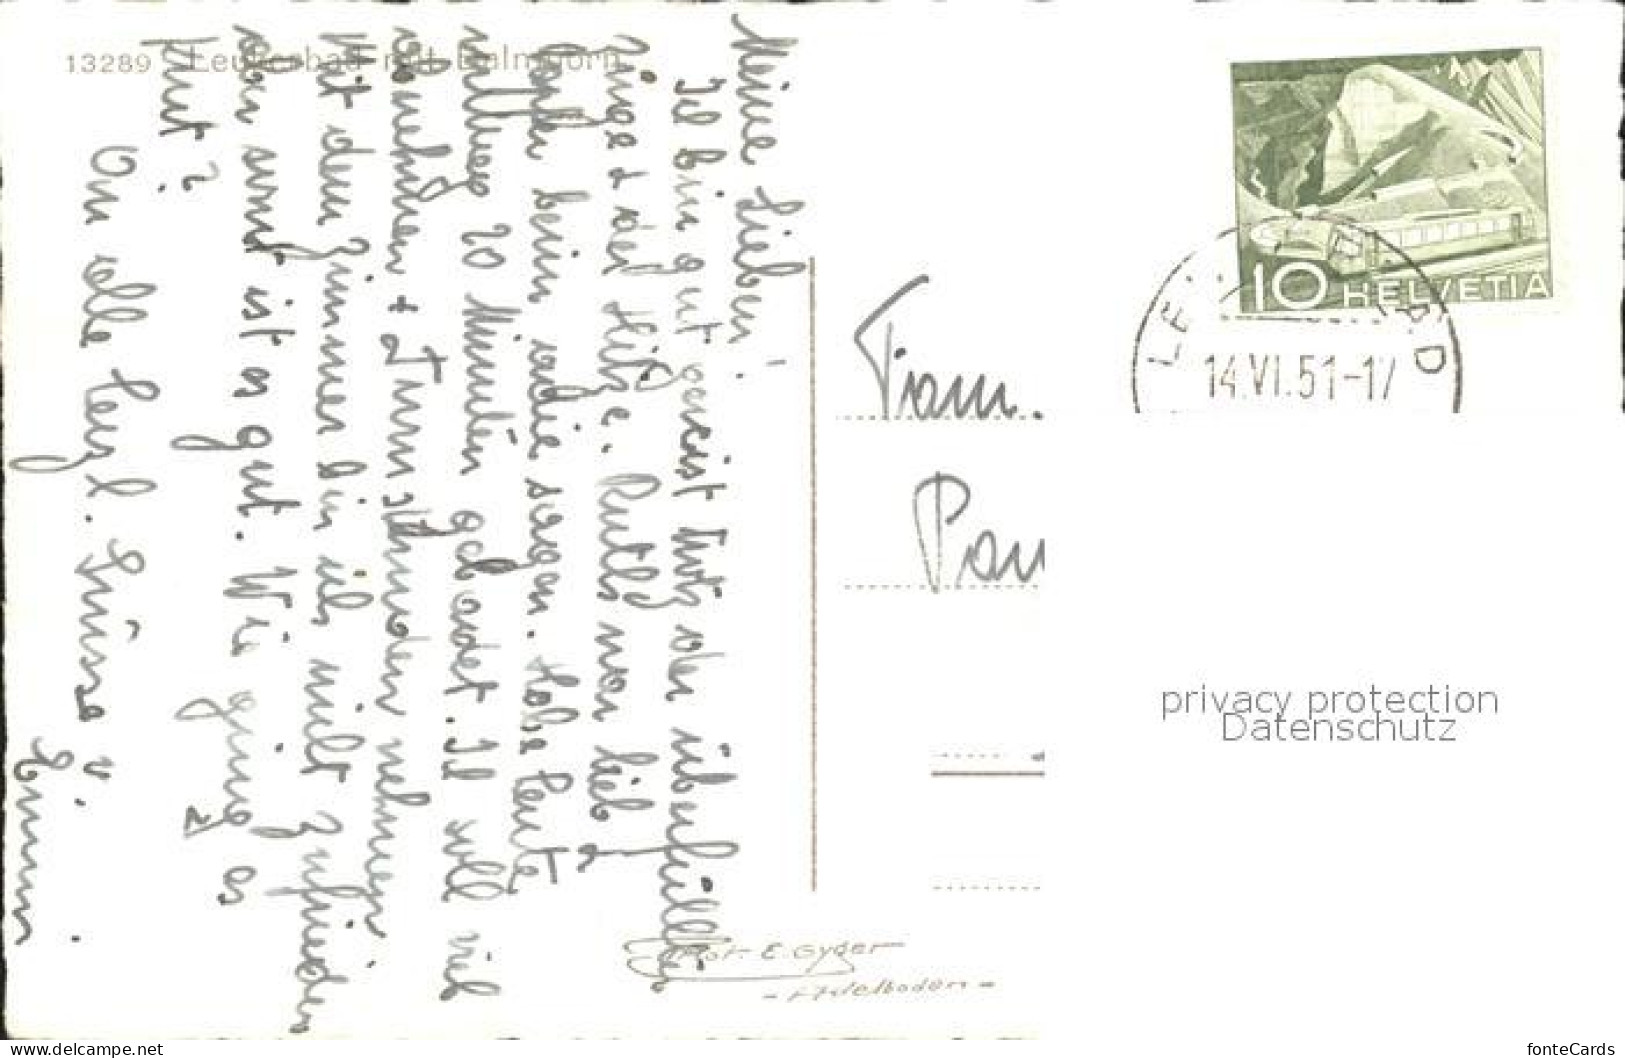 13289 Leukerbad mit Balmhorn
Meine Lieben!
Ich bin gut gereist trotz der überfüllten
Züge & der Hitze. Ruthli war lieb &
beim adie sagen. Habe heute
20 Minuten gebadet. Ich soll viel
& Turnstunden nehmen.
Mit dem Zimmer bin ich nicht zufrieden
aber sonst ist es gut. Wie ging es
An alle herzl. Grüsse v.
Emmi
HELVETIA
10
14.VI.51-17
Fam.
Pau
Phot. E. Gyger
- Adelboden -
privacy protection
Datenschutz
www.delcampe.net
fonteCards